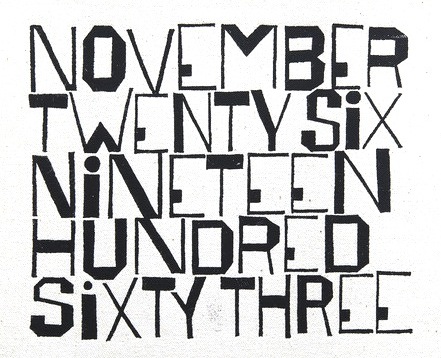 NOVEMBER
TWENTY SiX
NiNETEEN
HUNDRED
SiXTY THREE